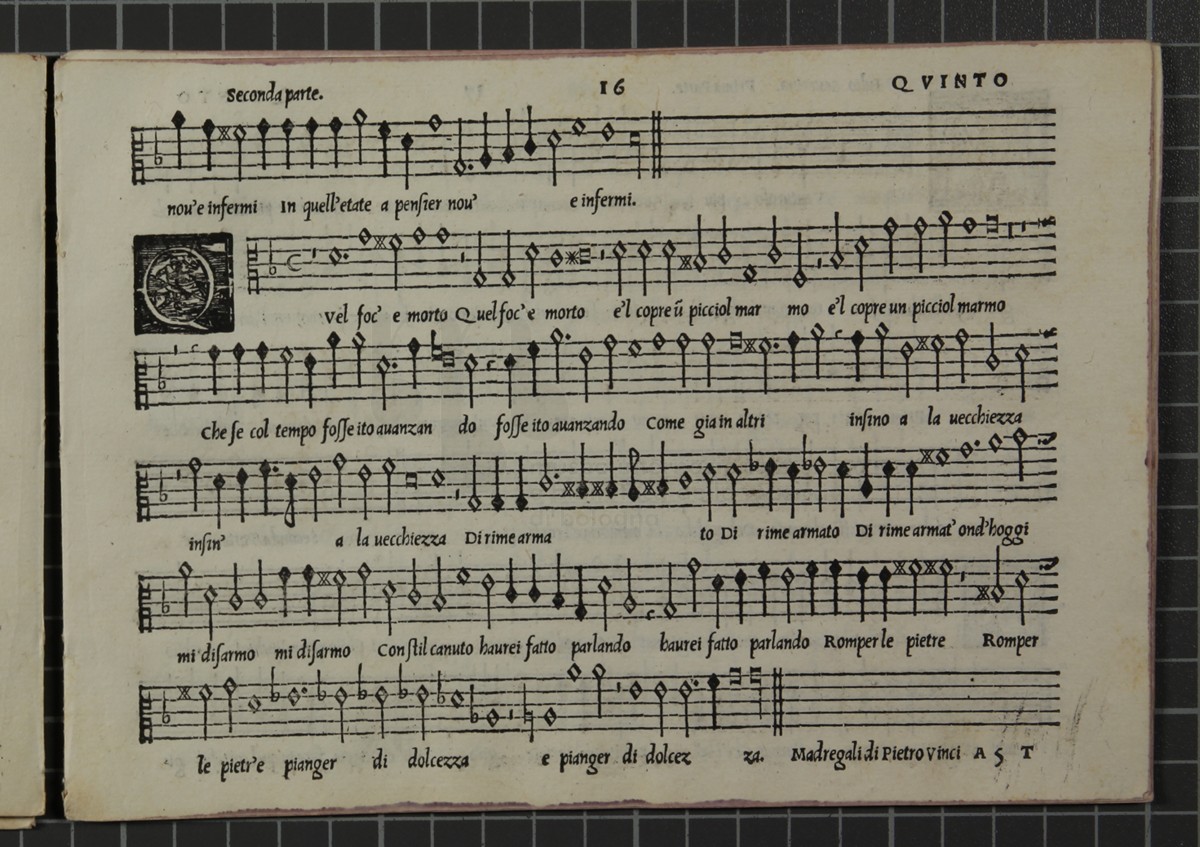 Seconda parte. 16 QVINTO
nou'e infermi In quell'etate a pensier nou' e infermi.
Q
Vel foc' e morto Quel foc' e morto e'l copre ũ picciol mar mo e'l copre un picciol marmo
Che se col tempo fosse ito auanzan do fosse ito auanzando Come gia in altri insino a la uecchiezza
insin' a la uecchiezza Di rime arma to Di rime armato Di rime armat' ond'hoggi
mi disarmo mi disarmo Con stil canuto haurei fatto parlando haurei fatto parlando Romper le pietre Romper
le pietr'e pianger di dolcezza e pianger di dolcez za. Madregali di Pietro Vinci A 5 T